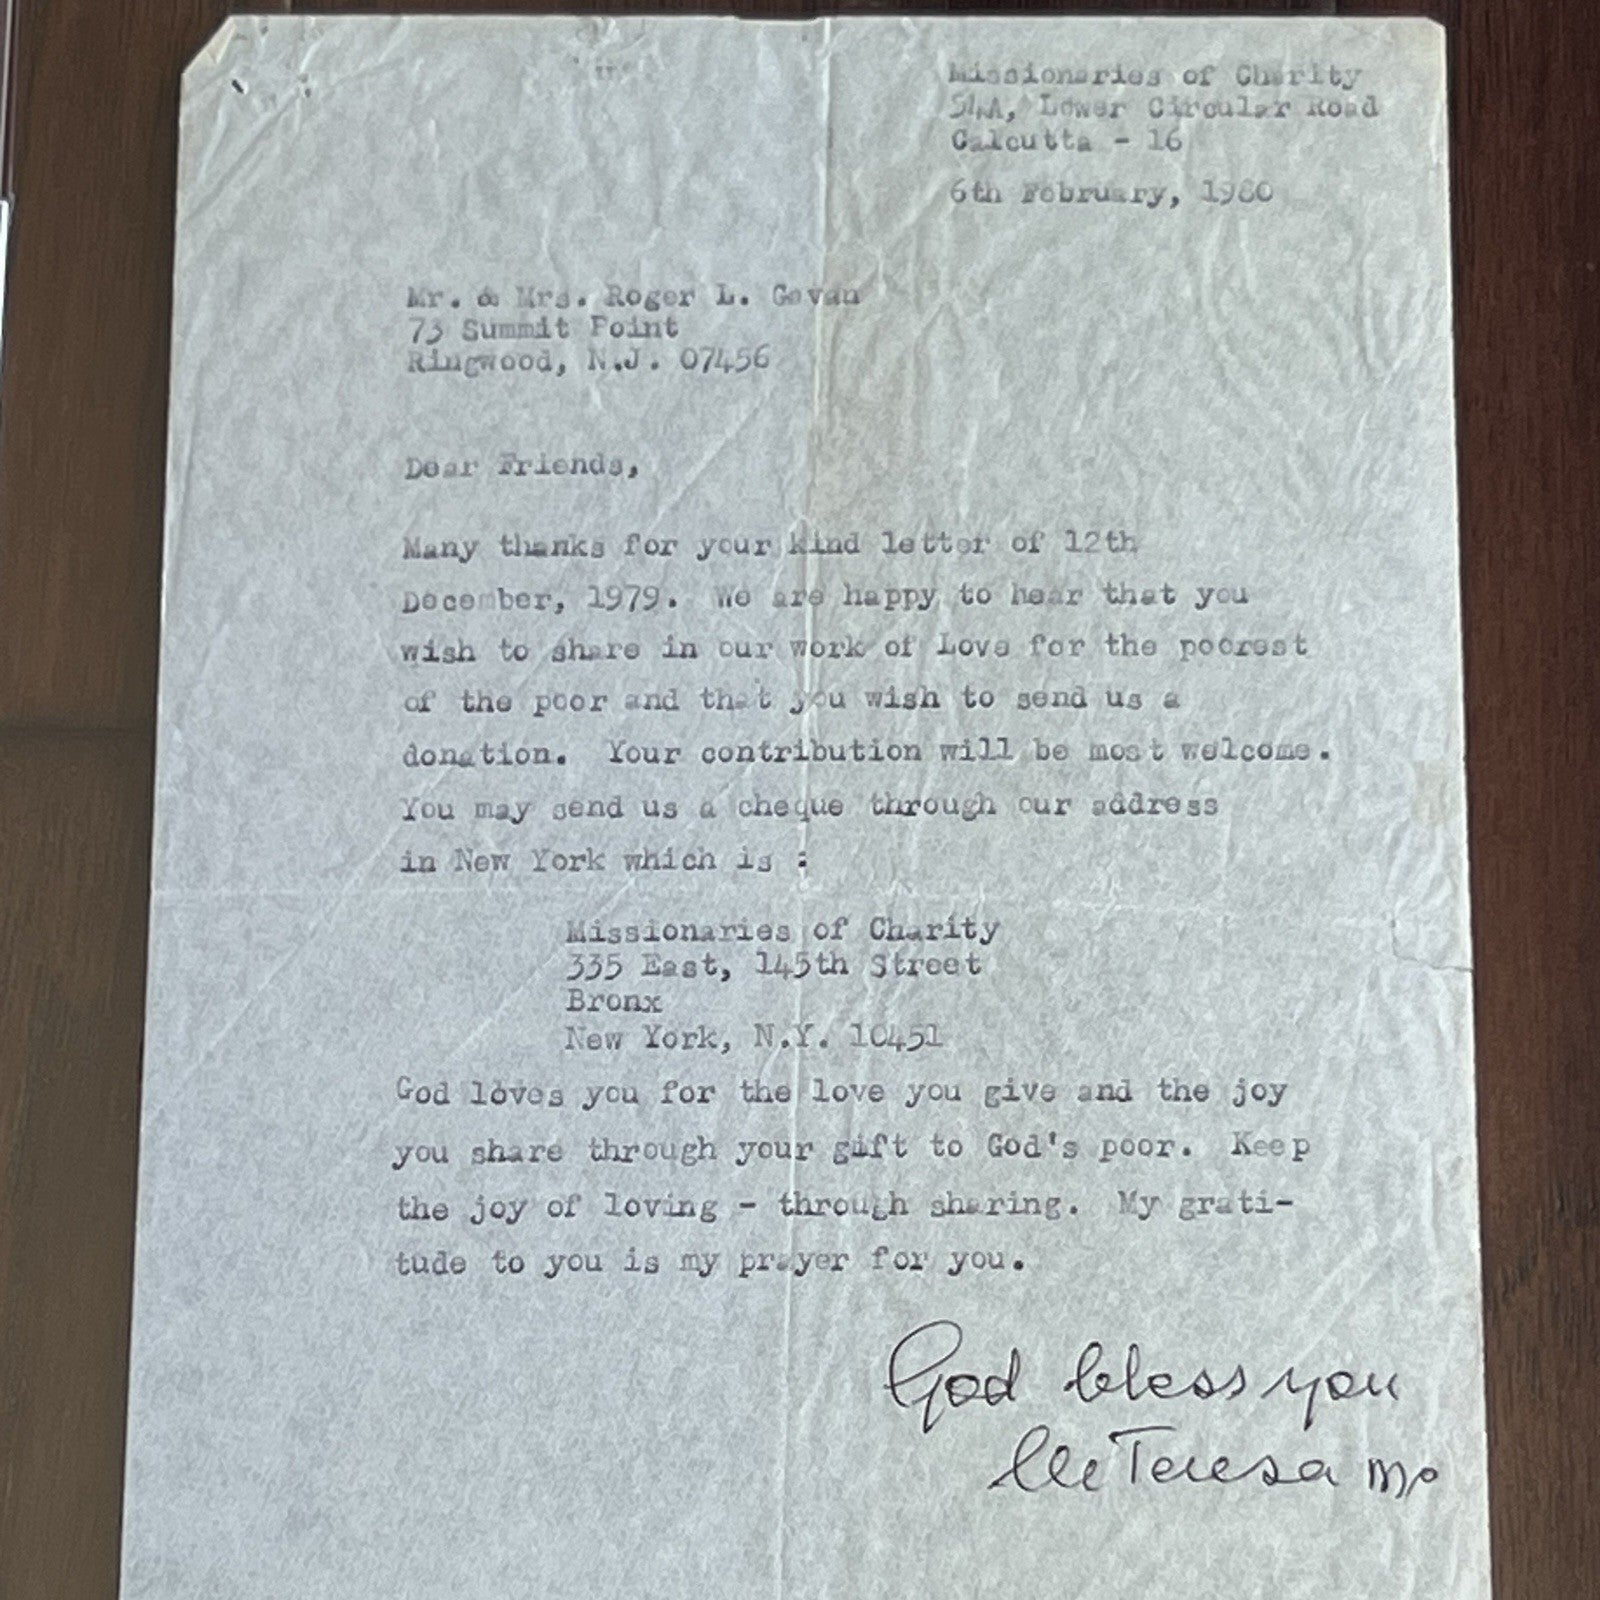 Missionaries of Charity
54A, Lower Circular Road
Calcutta - 16
6th February, 1980
Mr. & Mrs. Roger L. Govan
73 Summit Point
Ringwood, N.J. 07456
Dear Friends,
Many thanks for your kind letter of 12th
December, 1979. We are happy to hear that you
wish to share in our work of Love for the poorest
of the poor and that you wish to send us a
donation. Your contribution will be most welcome.
You may send us a cheque through our address
in New York which is :
Missionaries of Charity
335 East, 145th Street
Bronx
New York, N.Y. 10451
God loves you for the love you give and the joy
you share through your gift to God's poor. Keep
the joy of loving - through sharing. My grati-
tude to you is my prayer for you.
God bless you
lle Teresa mc